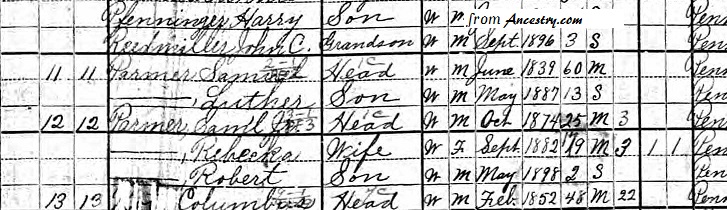 Pfenninger, Harry Son W M from Ancestry.com Pen
Reedmiller, John C. Grandson W M Sept 1896 3 S Pen
11 11 Parmer, Samuel Head W M June 1839 60 M Pen
—, Luther Son W M May 1887 13 S Pen
12 12 Parmer, Saml Jr. Head W M Oct 1874 25 M 3 Pen
—, Rebecka Wife W F Sept 1882 19 M 3 1 1 Pen
— Robert Son W M May 1898 2 S Pen
13 13 Columbus Head W M Feb. 1852 48 M 22 Pen